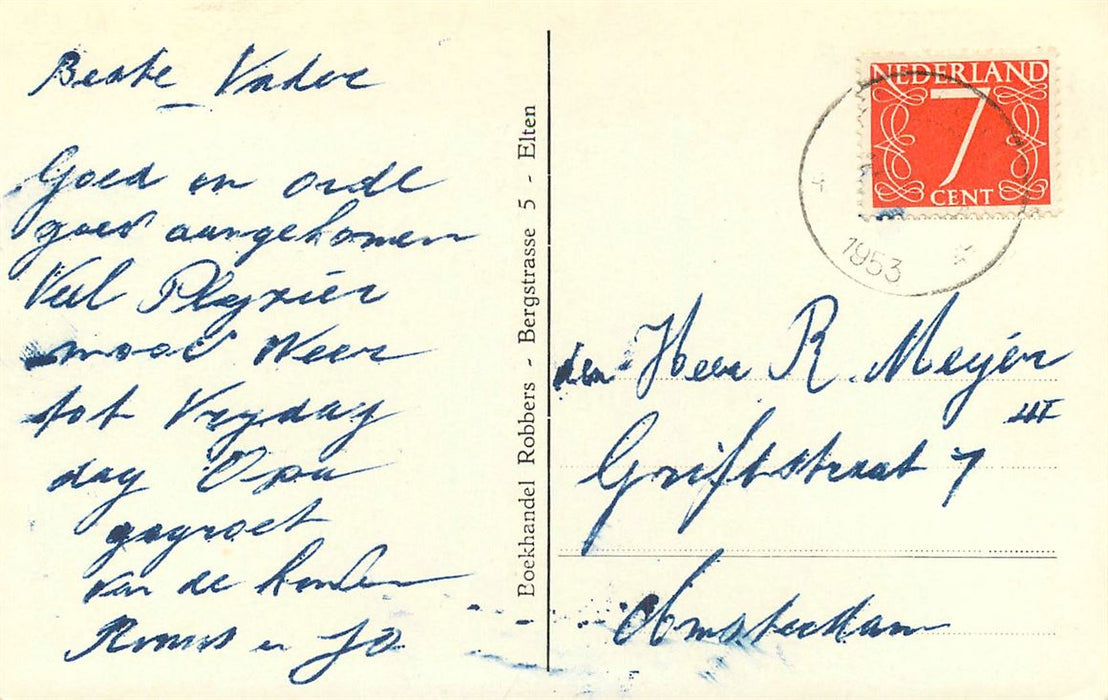 Beste Vader
Goed en orde
goed aangekomen
Veel Plezier
mooi Weer
tot Vrydag
dag Opa
gegroet
van de
en Jo
Boekhandel Robbers - Bergstrasse 5 - Elten
NEDERLAND
7
CENT
1953
den Heer R. Meyér
III
Griftstraat 7
Amsterdam